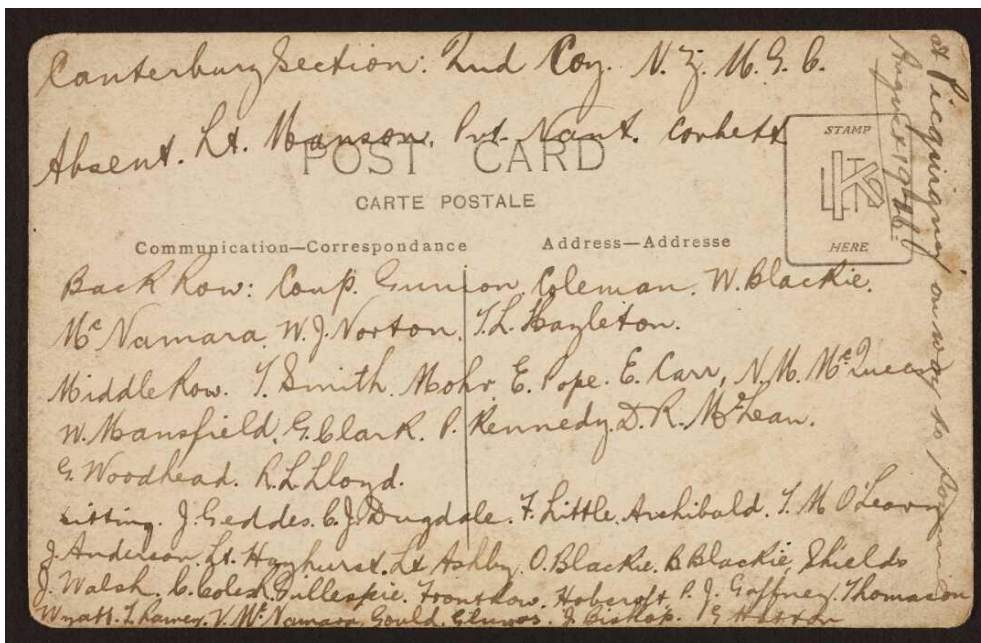 Canterbury Section: 2nd Coy. N. Z. M. G. C.
Absent. Lt. Manson. Pvt. Nant. Corbett
POST CARD
CARTE POSTALE
Communication—Correspondance
Address—Addresse
STAMP
HERE
at Picquigny on way to
August 1916
Back Row: Coup. Gunnion. Coleman. W. Blackie.
McNamara. W. J. Norton. T. L. Hazleton.
Middle Row. T. Smith. Mohr. E. Pope. E. Carr, N. M. McQueen
W. Mansfield. G. Clark. P. Kennedy. D. R. McLean.
G. Woodhead. R. L. Lloyd.
Sitting. J. Geddes. C. J. Dugdale. F. Little. Archibald. T. M O'Leary
J. Anderson. Lt. Hayhurst. Lt Ashby. O. Blackie. B Blackie. Shields
J. Walsh. C. Coles. Gillespie. Front Row. Hobcroft. P. J. Gaffney. Thomason
Wyatt. V. McNamara. Gould. J. Bishop.